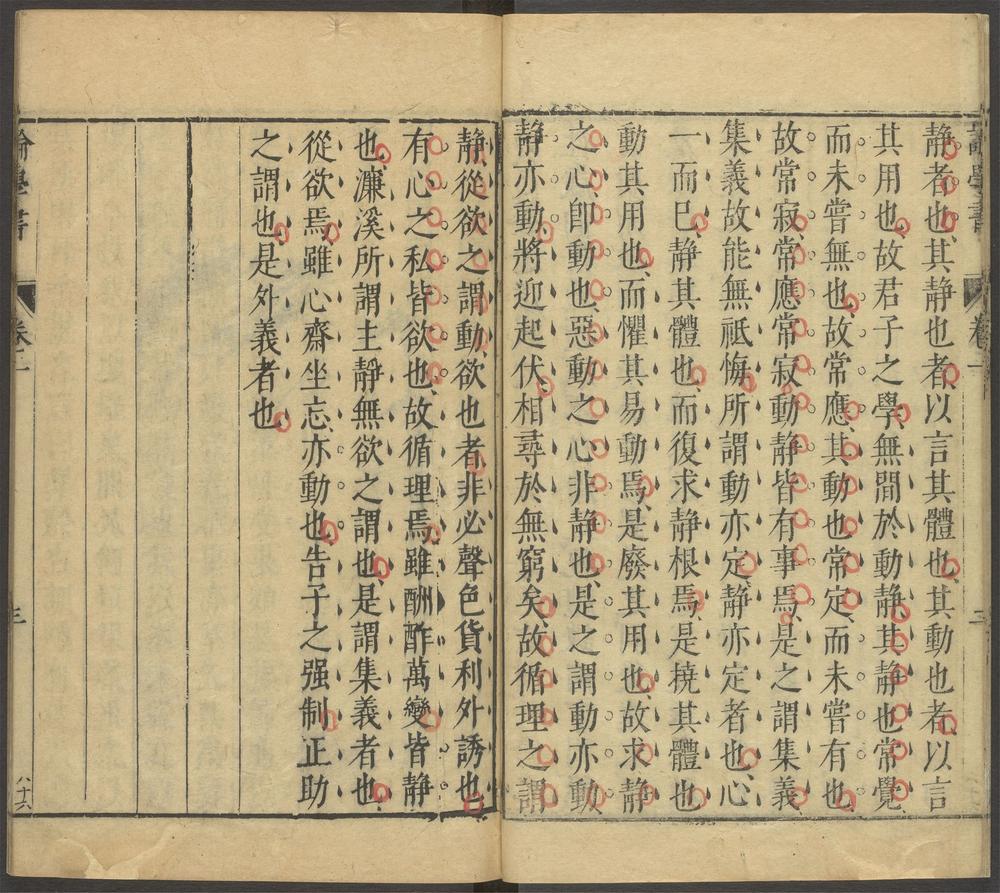 靜者也其靜也者以言其體也其動也者以言
其用也故君子之學無間於動靜其靜也常覺
而未嘗無也故常應其動也常定而未嘗有也
故常寂常應常寂動靜皆有事焉是之謂集義
集義故能無祇悔所謂動亦定靜亦定者也心
一而已靜其體也而復求靜根焉是撓其體也
動其用也而懼其易動焉是廢其用也故求靜
之心卽動也惡動之心非靜也是之謂動亦動
靜亦動將迎起伏相尋於無窮矣故循理之謂
靜從欲之謂動欲也者非必聲色貨利外誘也
有心之私皆欲也故循理焉雖酬酢萬變皆靜
也濂溪所謂主靜無欲之謂也是謂集義者也
從欲焉雖心齋坐忘亦動也告子之强制正助
之謂也是外義者也
卷二
三
八十六